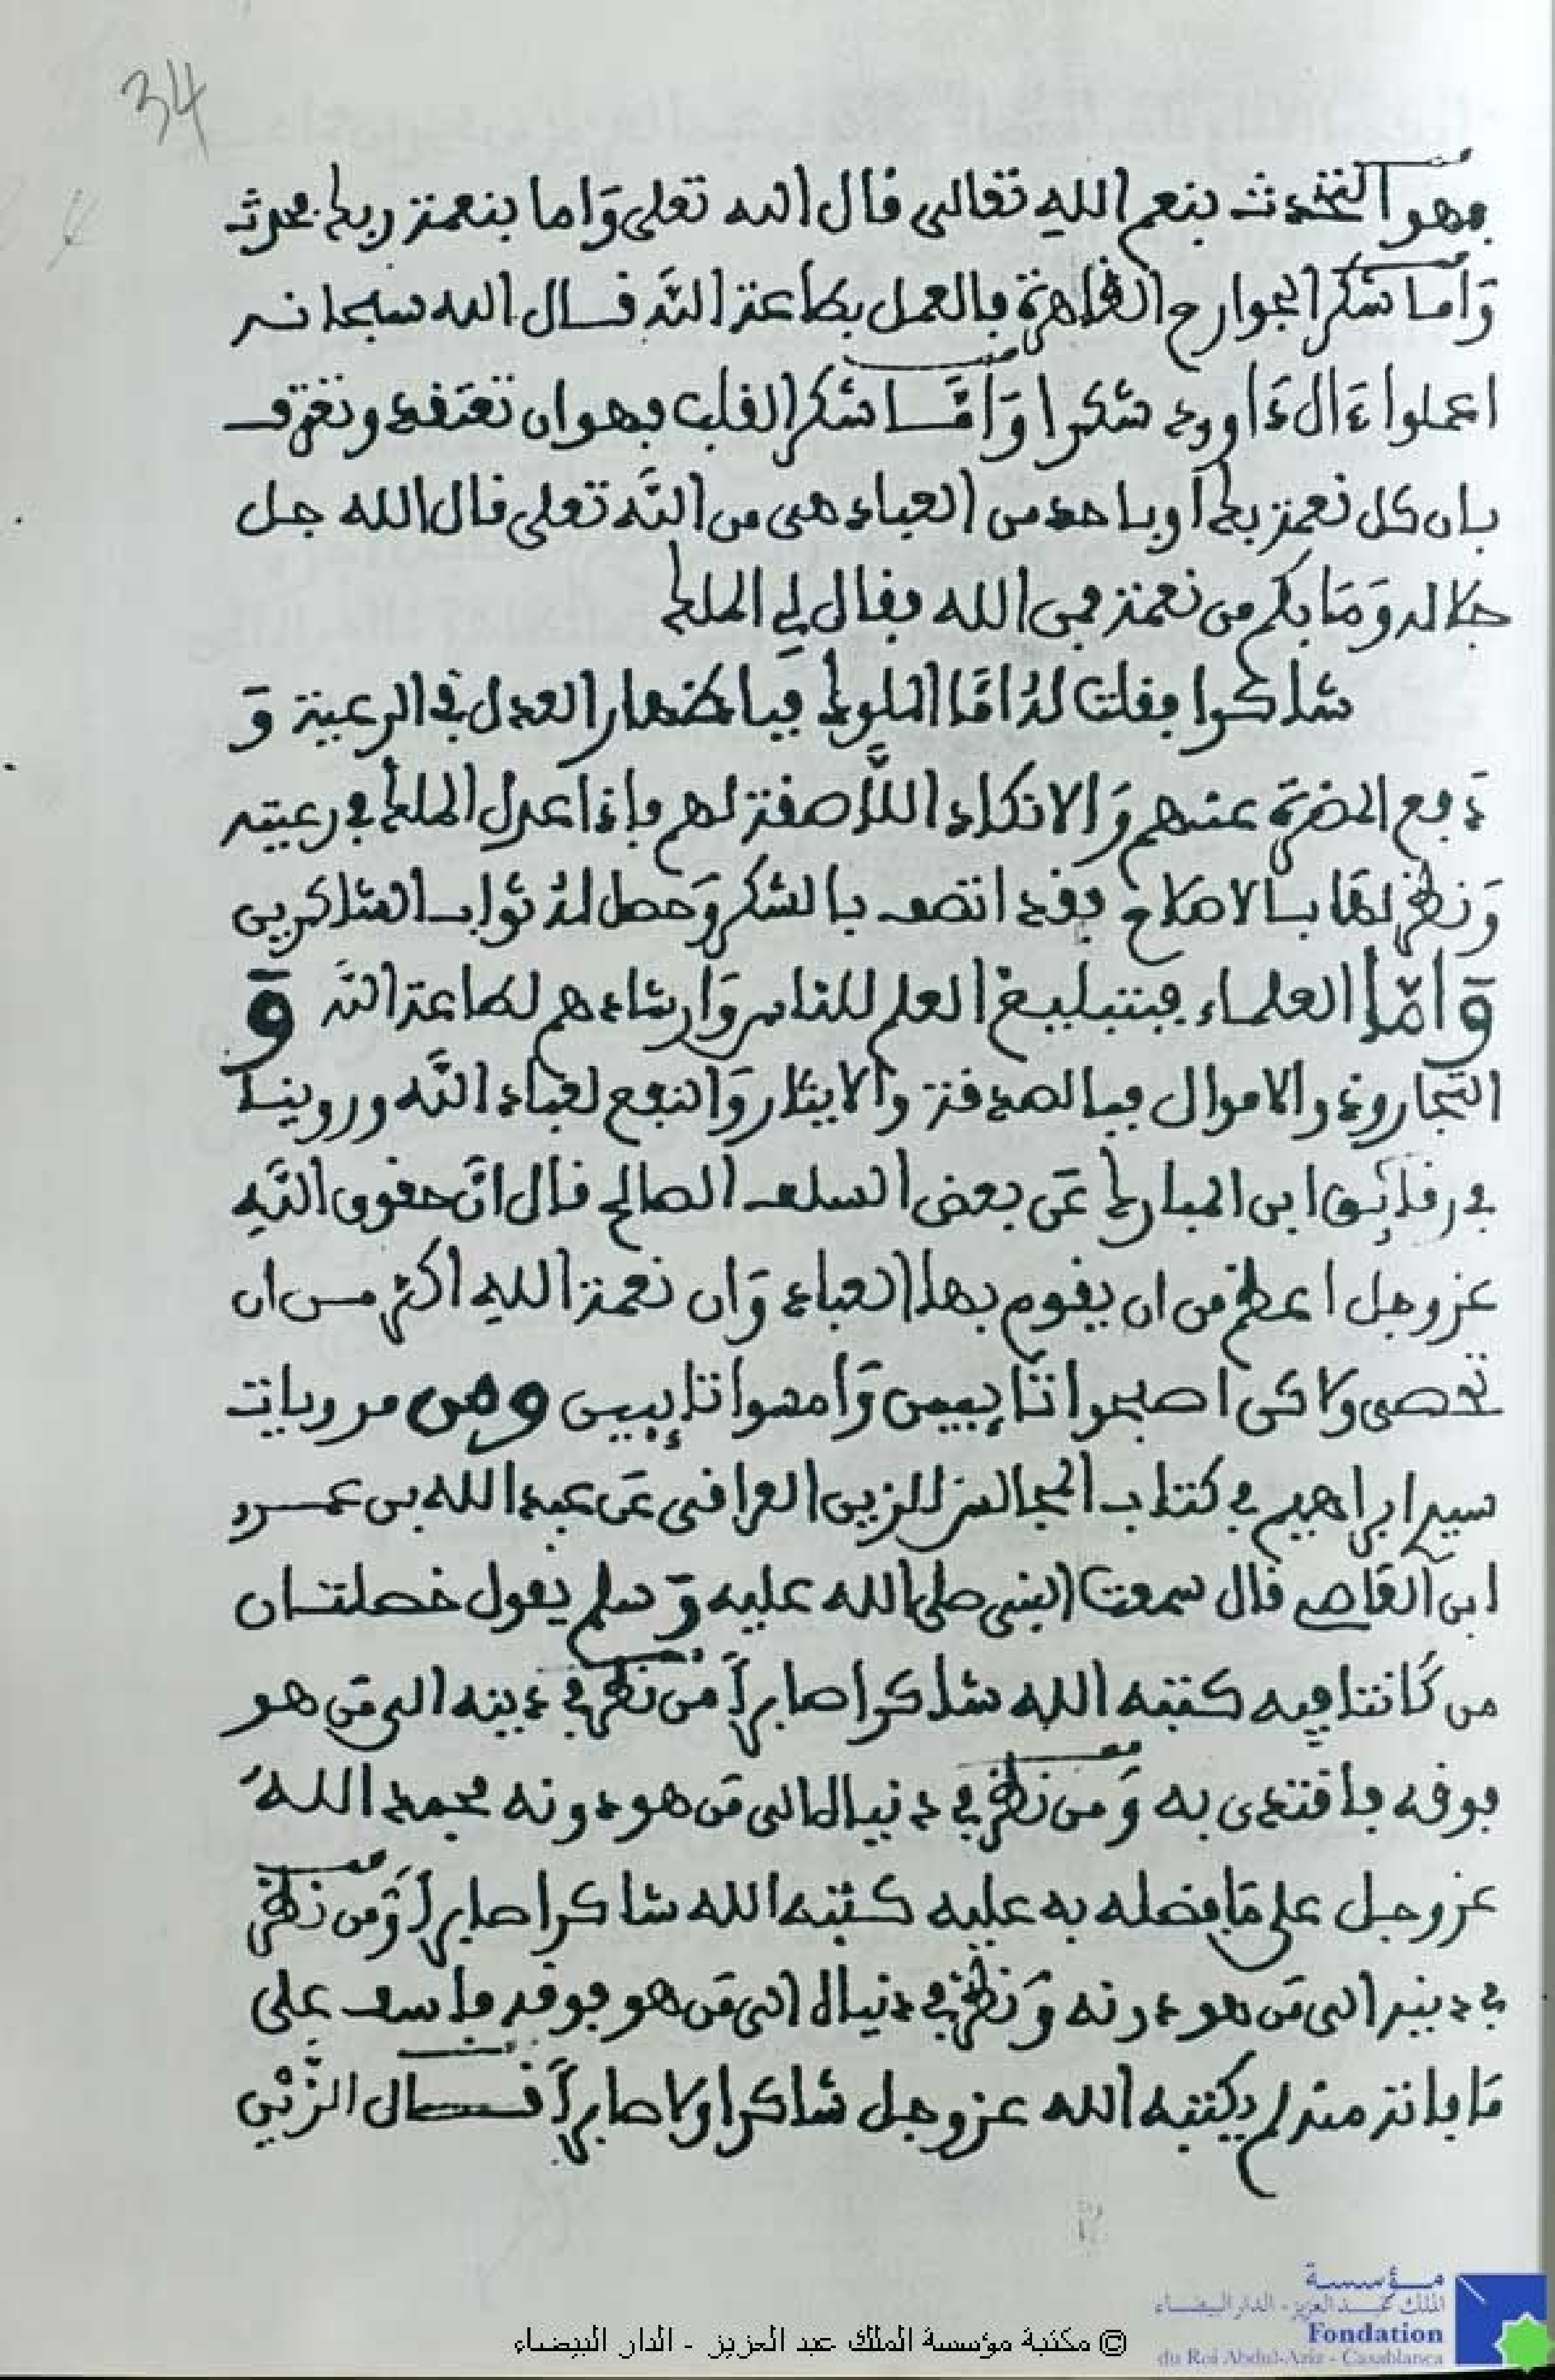 34
فهو التحدث بنعم الله تعالى قال الله تعلى وَاما بنعمة ربك فحدث
وَاما شكر الجوارح الظاهرة فبالعمل بطاعة اللَّه قال الله سبحانه
اعملوا ءَال دَاوود شكرا وَامَّا شكر القلب فهو ان تعتقد وتعترف
بان كل نعمة بك او باحد من العباد هي من اللَّه تعلى قال الله جل
جلاله وَمَا بكم من نعمة فمن الله فقال لي الملك
شاكرا فقلت لهُ امَّا الملوك فباظهار العدل في الرعية وَ
دَفع المضرة عنهم وَالانكاد اللَّاصقة لهم فإذا عدل الملك في رعيته
وَنظر لها بالاصلاح فقد اتصف بالشكر وَحصل لهُ ثواب الشاكرين
وَامَّا العلماء فبتبليغ العلم للناس وَارشادهم لطاعة اللَّه وَ
التجار وذو الاموال فبالصدقة والايثار وَالنفع لعباد اللَّه وروينا
في رقائق ابن المبارك عَن بعض السلف الصالح قال انَّ حقوق اللَّهِ
عز وجل اعظم من ان يقوم بها العباد وَان نعمة اللهِ اكثر من ان
تحصى ولاكن اصبحوا تَائِبين وَامسوا تائِبين ومن مرويات
سيد ابراهيم في كتاب المجالس للزين العراقي عَن عبد الله بن عمرو
ابن العَاصي قال سمعت النبي صلى الله عليه وَسلم يقول خصلتان
من كَانتا فيه كتبه الله شاكرا صابراً مَن نظر في دينه الى مَن هو
فوقه فاقتدى به وَمن نظر في دنياه الى مَن هو دونه فحمد اللهَ
عز وجل على مَا فضله به عليه كتبه الله شاكرا صابراً وَمن نظر
في دينه الى مَن هو دونه وَنظر في دنياه الى مَن هو فوقه فاسف على
مَا فاته منه لم يكتبه الله عز وجل شاكرا ولا صابراً قال الزَّين
© مكتبة مؤسسة الملك عبد العزيز - الدار البيضاء
مؤسسة
الملك عبد العزيز - الدار البيضاء
Fondation
du Roi Abdul-Aziz - Casablanca